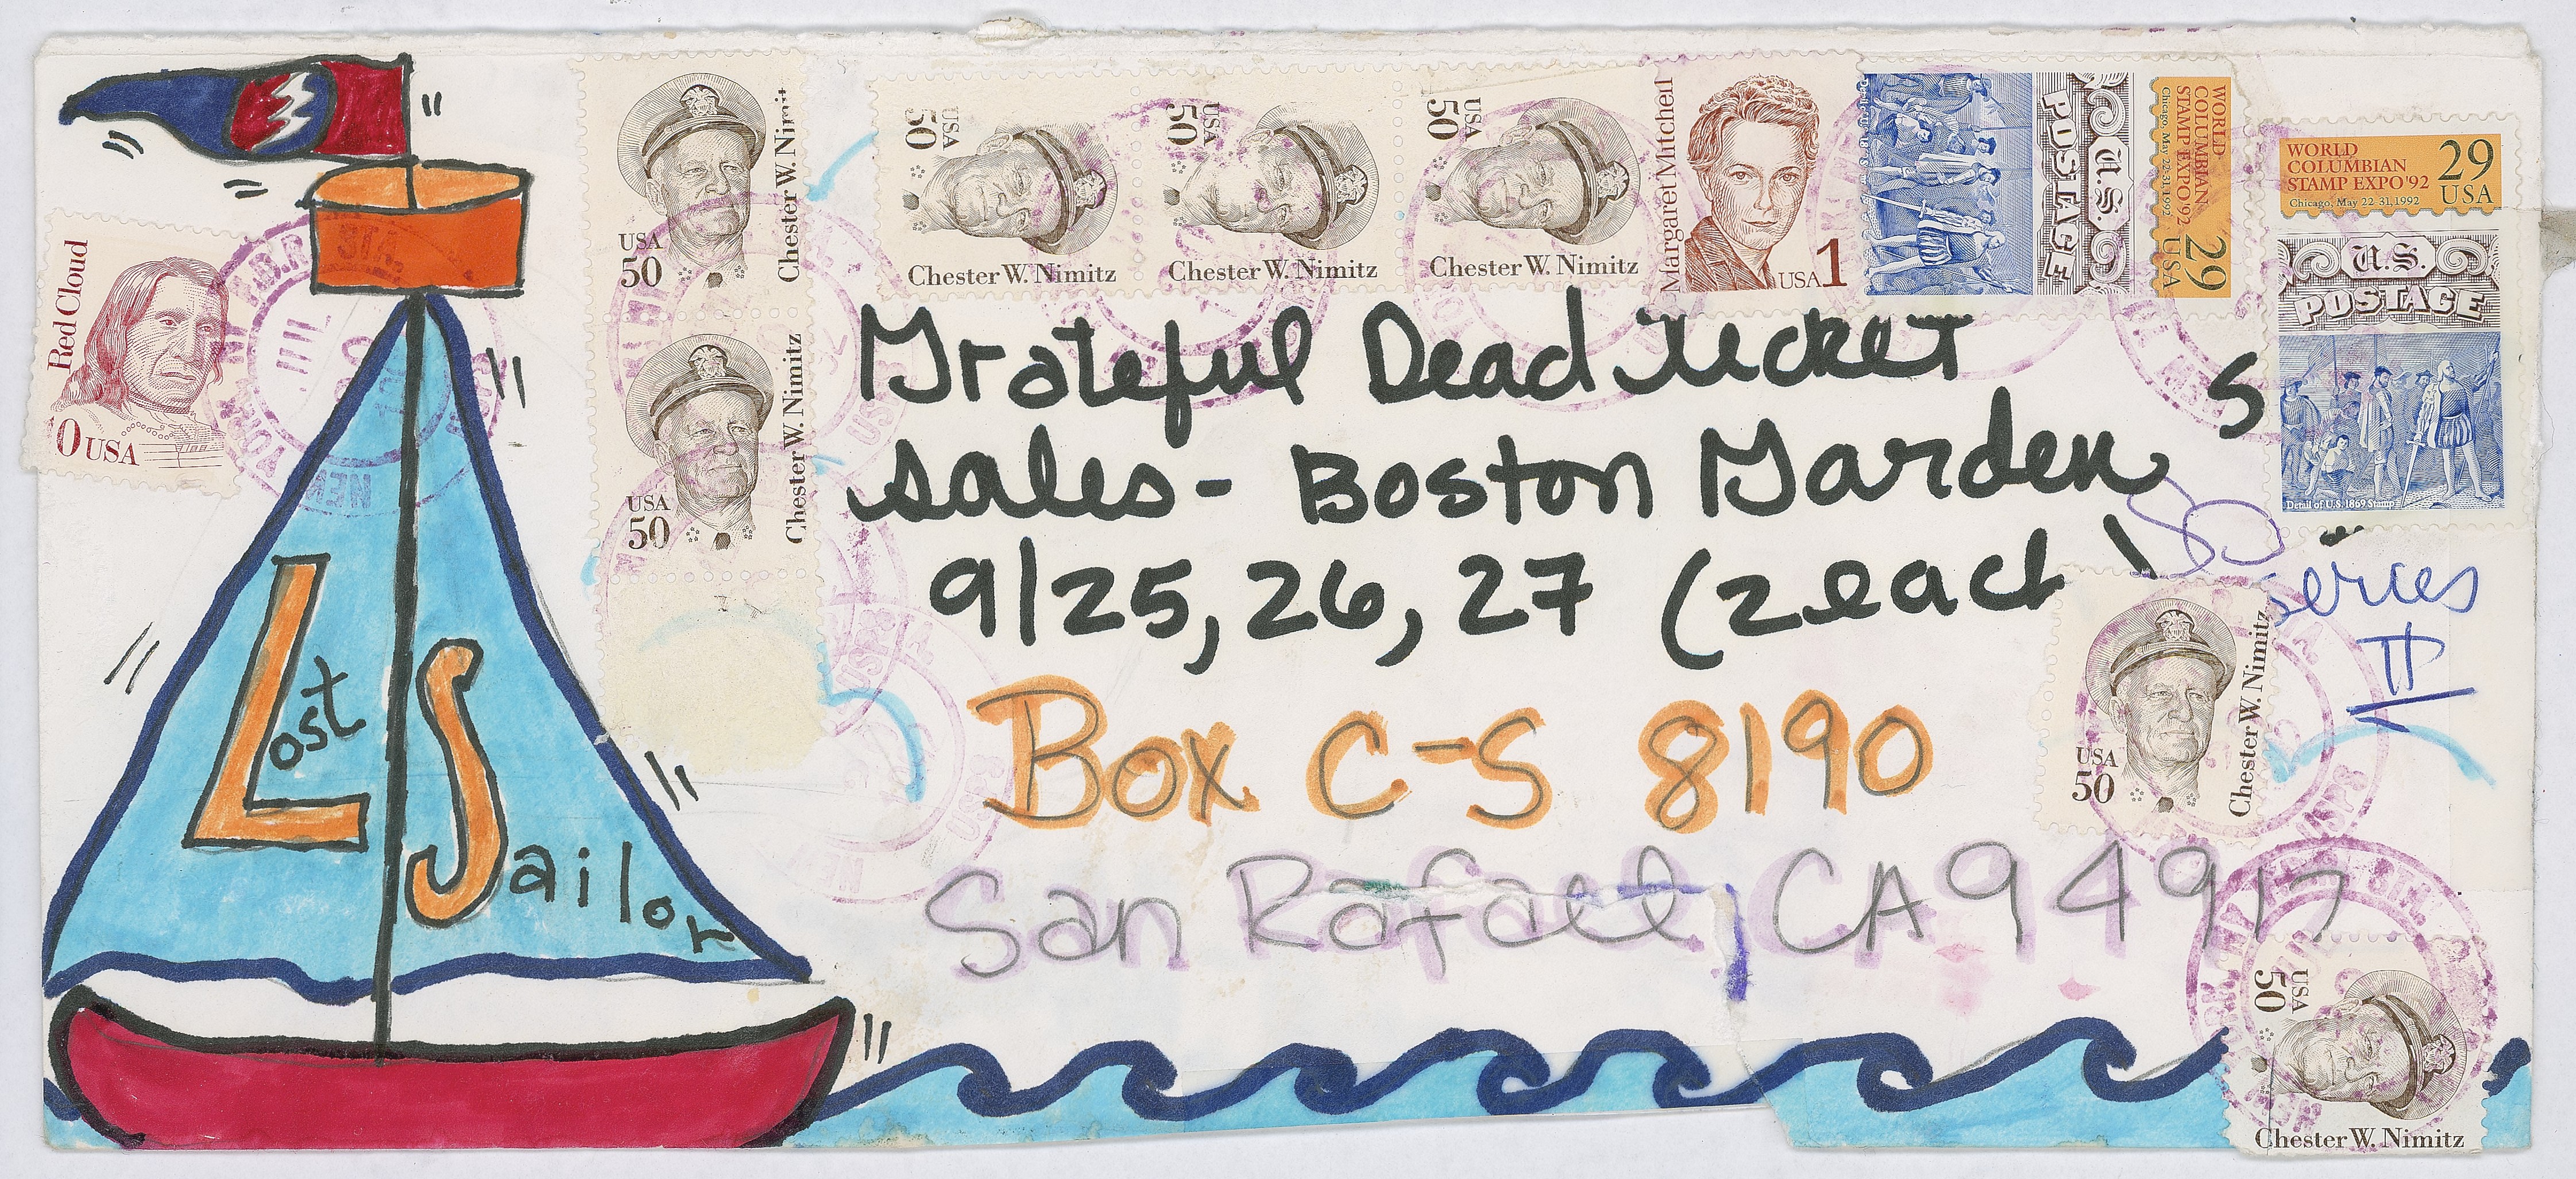 Red Cloud
0 USA
Lost
Sailor
Chester W. Nimitz
USA
50
Chester W. Nimitz
USA
50
50
USA
Chester W. Nimitz
50
USA
Chester W. Nimitz
50
USA
Chester W. Nimitz
Margaret Mitchell
USA 1
U.S.
POSTAGE
WORLD
COLUMBIAN
STAMP EXPO'92
Chicago, May 22-31, 1992
29
USA
WORLD
COLUMBIAN
STAMP EXPO'92
Chicago, May 22-31, 1992
29
USA
U.S.
POSTAGE
Detail of U.S. 1869 Stamp
Grateful Dead Ticket
Sales- Boston Garden
9/25, 26, 27 (2 each)
Box C-S 8190
San Rafael, CA 94917
S
series
II
Chester W. Nimitz
USA
50
50
USA
Chester W. Nimitz